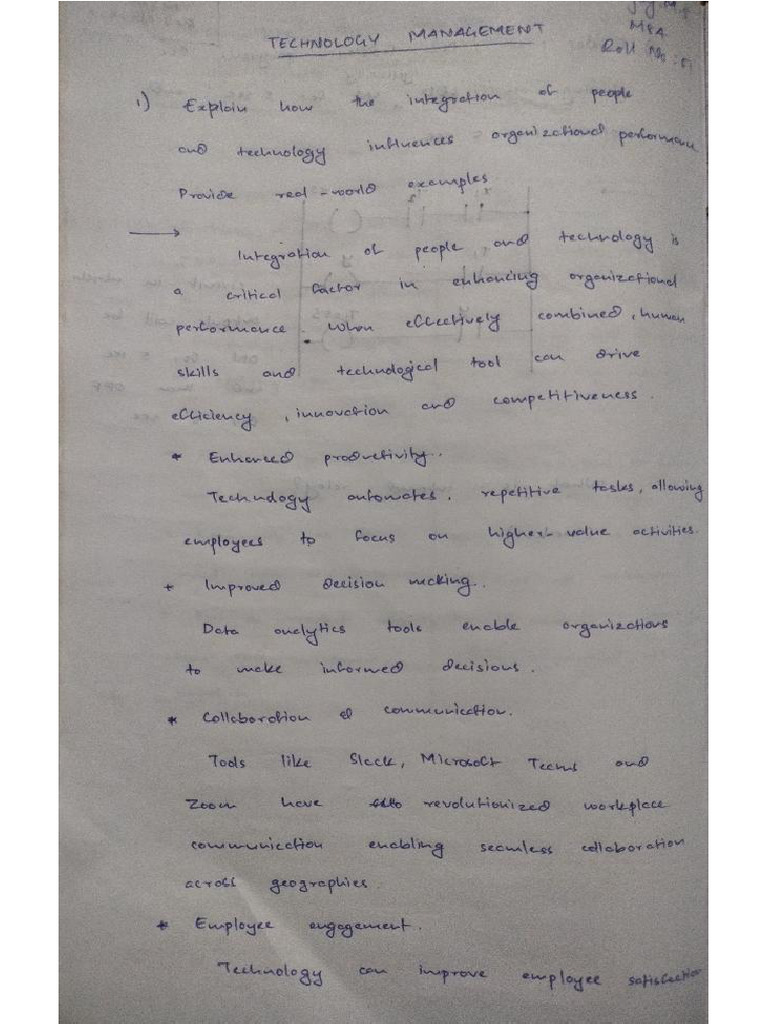 TECHNOLOGY MANAGEMENT
Roll No:
1) Explain how the integration of people
and technology influences organizational performance
Provide real-world examples
Integration of people and technology is
a critical factor in enhancing organizational
performance. When effectively combined, human
skills and technological tool can drive
efficiency, innovation and competitiveness.
* Enhanced productivity.
Technology automates. repetitive tasks, allowing
employees to focus on higher-value activities.
* Improved decision making.
Data analytics tools enable organizations
to make informed decisions.
* Collaboration & communication.
Tools like Slack, Microsoft Teams and
Zoom have revolutionized workplace
communication enabling seamless collaboration
across geographies.
* Employee engagement.
Technology can improve employee satisfaction